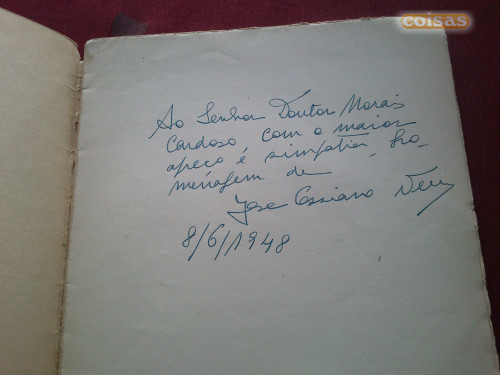 coisas
Ao Senhor Doutor Morais
Cardoso, com o maior
apeço e simpatia, ho-
menagem de
Jose Cassiano Neves
8/6/1948